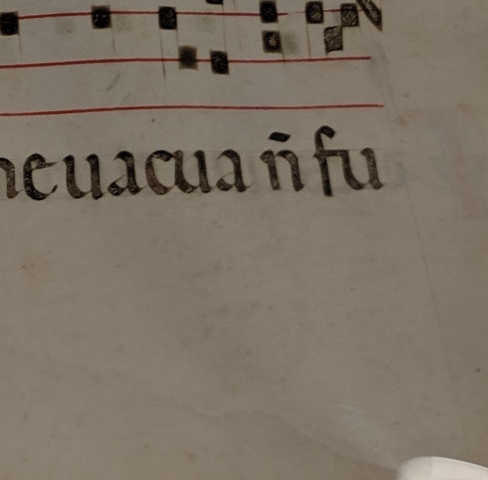 ne uacua ñ fu